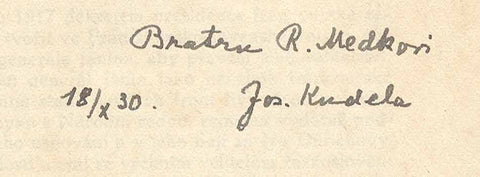 Bratru R. Medkovi
18/X 30. Jos. Kudela